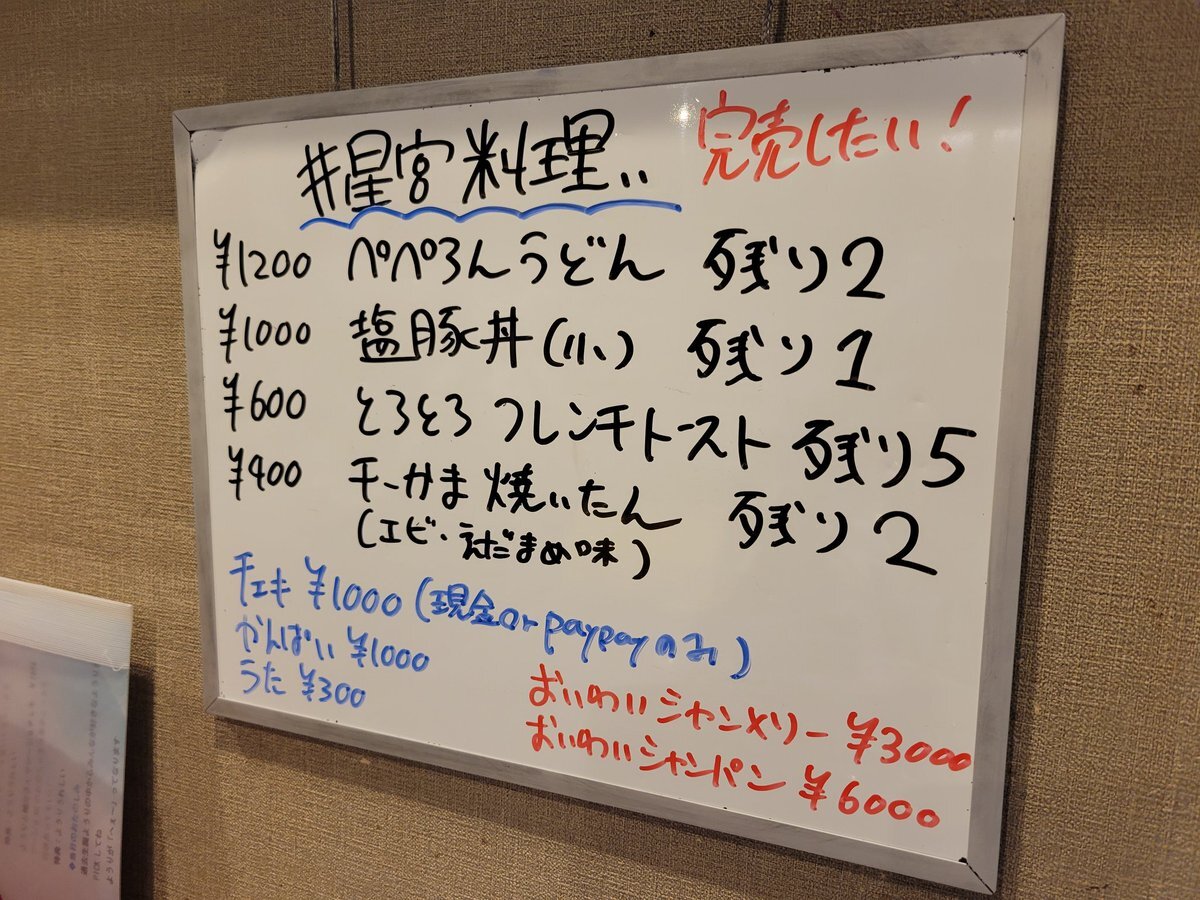 #星宮料理..
完売したい!
¥1200 ペペろんうどん 残り2
¥1000 塩豚丼(小) 残り1
¥600 とろとろフレンチトースト 残り5
¥400 チーかま焼いたん 残り2
(エビ・えだまめ味)
チェキ ¥1000(現金or paypayのみ)
かんぱい ¥1000
うた ¥300
おいわいシャンメリー ¥3000
おいわいシャンパン ¥6000